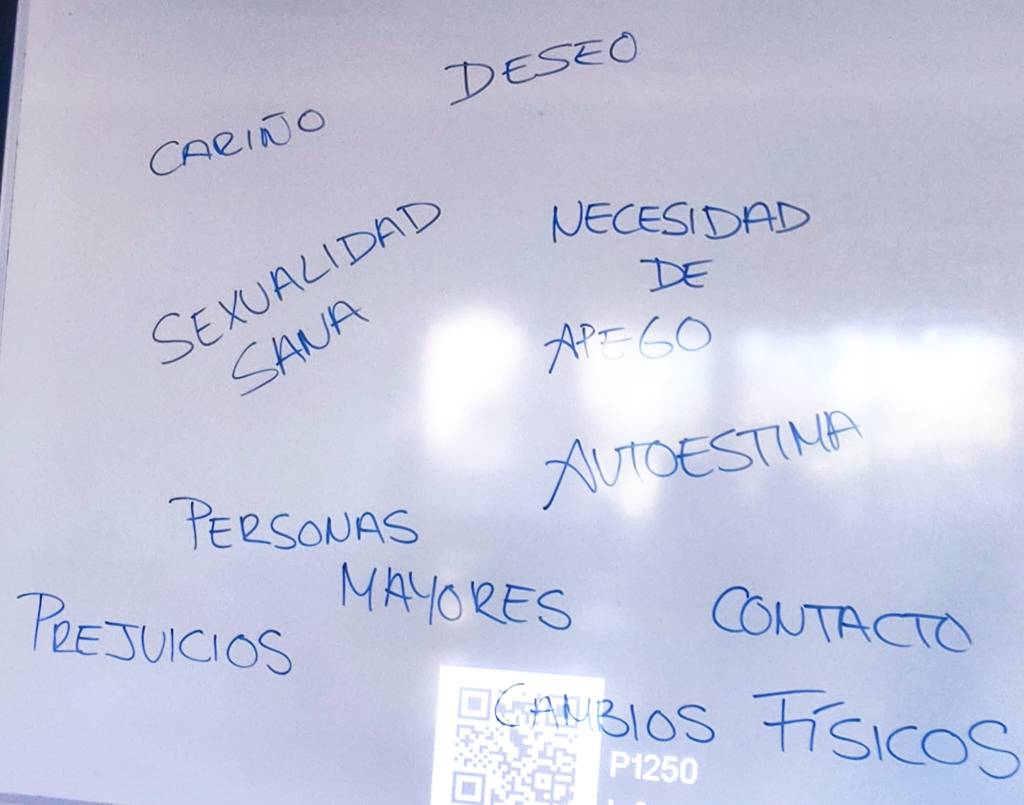 DESEO
CARIÑO
SEXUALIDAD
SANA
NECESIDAD
DE
APEGO
AUTOESTIMA
PERSONAS
MAYORES
PREJUICIOS
CONTACTO
CAMBIOS FÍSICOS
P1250